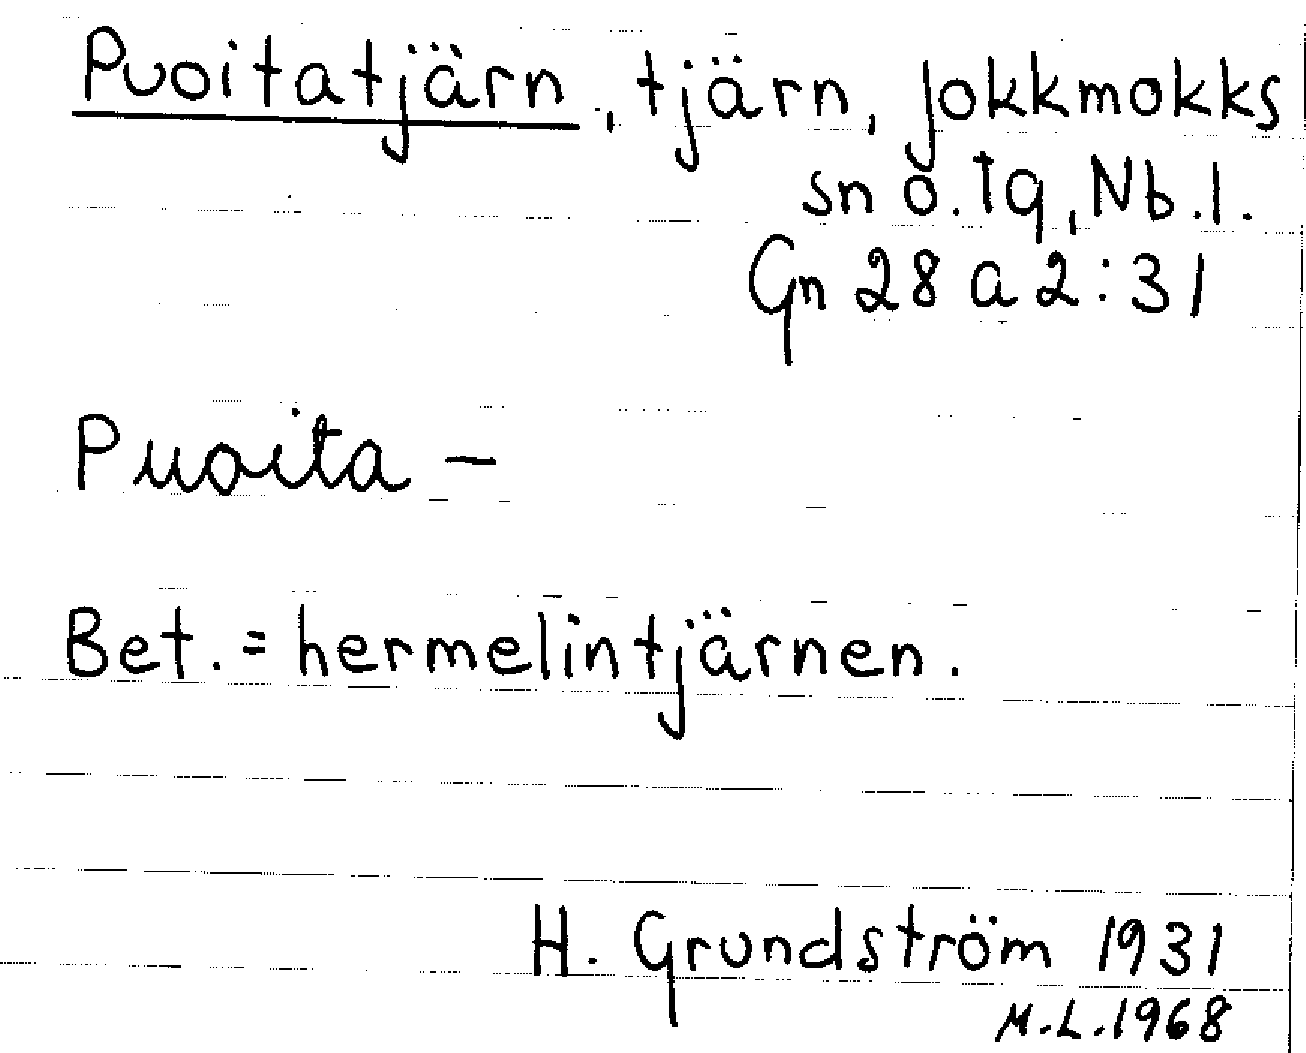 Puoitatjärn, tjärn, Jokkmokks
sn o. tg, Nb. l.
Gn 28 a 2:31
Puoita –
Bet. = hermelintjärnen.
H. Grundström 1931
M.L. 1968